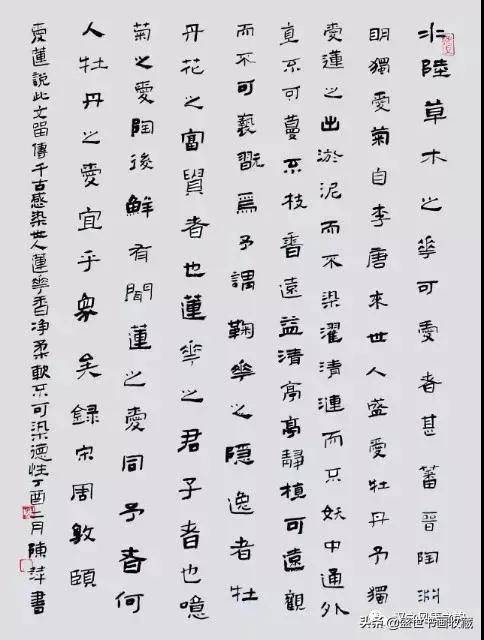 水陸草木之華可愛者甚蕃晉陶淵
明獨愛菊自李唐來世人盛愛牡丹予獨
愛蓮之出淤泥而不染濯清漣而不妖中通外
直不可蔓不枝香遠益清亭亭靜植可遠觀
而不可褻翫焉予謂鞠華之隱逸者牡
丹花之富貴者也蓮華之君子者也噫
菊之愛陶後鮮有聞蓮之愛同予者何
人牡丹之愛宜乎衆矣錄宋周敦頤
愛蓮說此文留傳千古感染世人蓮華香净柔軟不可染德性丁酉二月陳萍書
头条 @盛世书画收藏